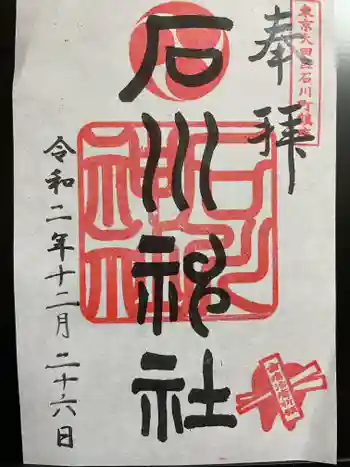 東京大田区石川町鎮座
奉拝
石川神社
令和二年十二月二十六日